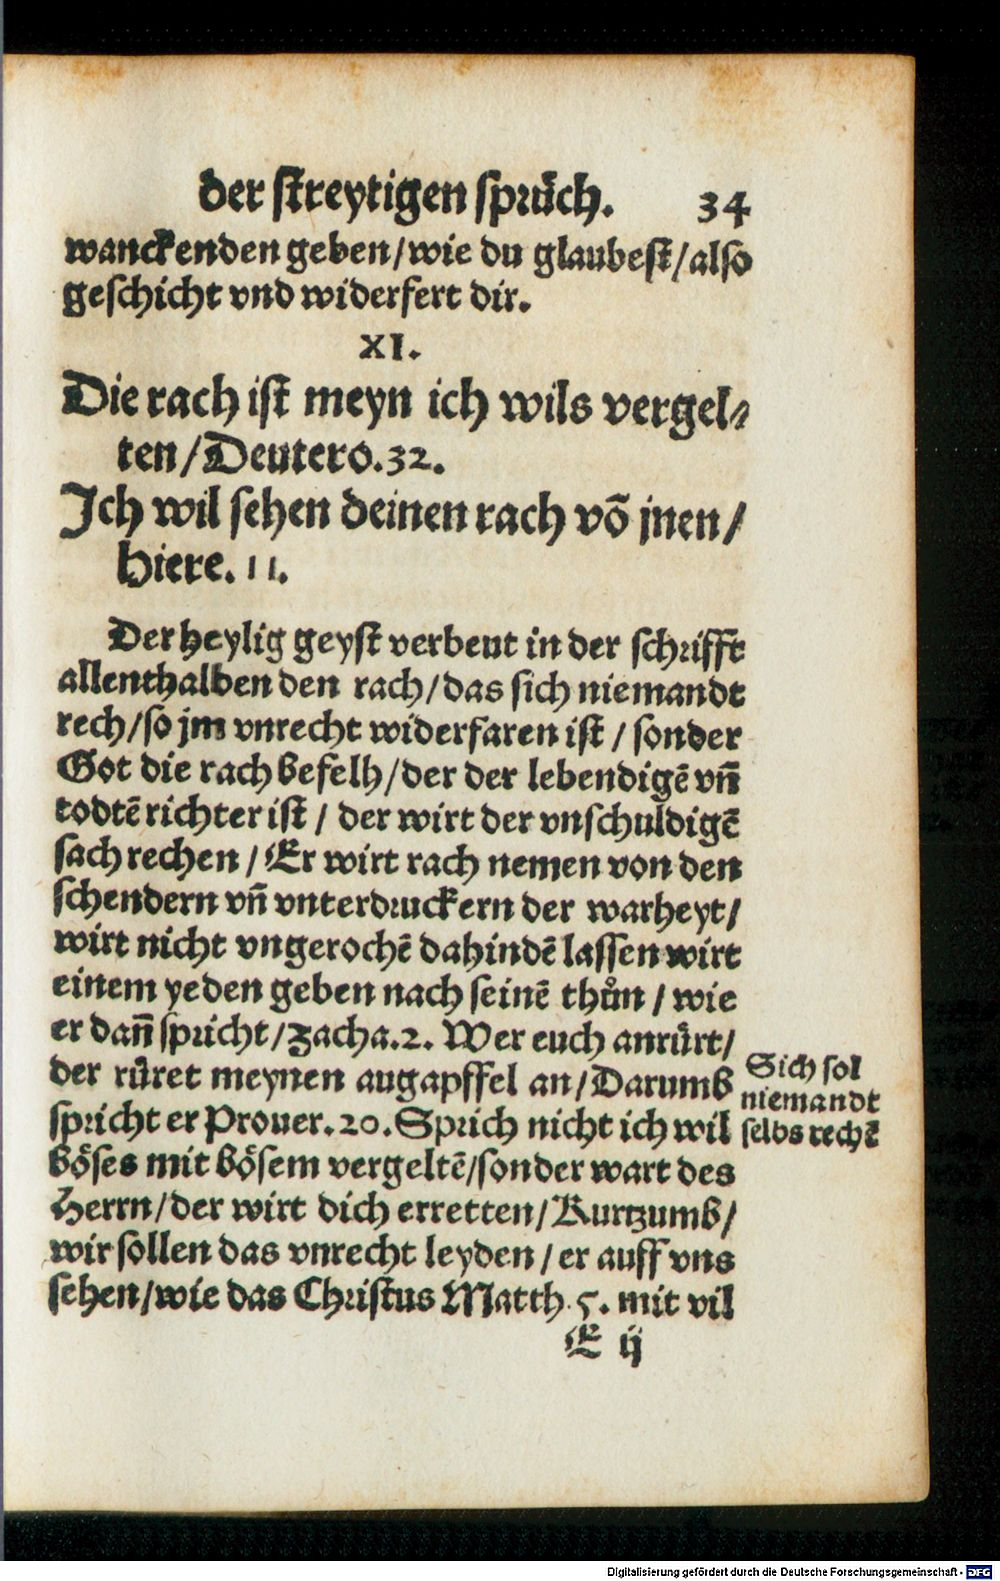 der streytigen sprüch. 34
wanckenden geben/wie du glaubest/also
geschicht vnd widerfert dir.
XI.
Die rach ist meyn ich wils vergel⸗
ten/Deutero.32.
Ich wil sehen deinen rach võ jnen/
Hiere. 11.
Der heylig geyst verbeut in der schrifft
allenthalben den rach/das sich niemandt
rech/so jm vnrecht widerfaren ist/sonder
Got die rach befelh/der der lebendigẽ vñ
todtẽ richter ist/ der wirt der vnschuldigẽ
sach rechen/Er wirt rach nemen von den
schendern vñ vnterdruckern der warheyt/
wirt nicht vngerochẽ dahindẽ lassen wirt
einem yeden geben nach seinẽ thůn/wie
er dañ spricht/Zacha.2. Wer euch anrürt/
der rüret meynen augapffel an/Darumb
Sich sol
niemandt
selbs rechẽ
spricht er Prouer.20.Sprich nicht ich wil
böses mit bösem vergeltẽ/sonder wart des
Herrn/der wirt dich erretten/Kurtzumb/
wir sollen das vnrecht leyden/er auff vns
sehen/wie das Christus Matth.5. mit vil
E ij
Digitalisierung gefördert durch die Deutsche Forschungsgemeinschaft - DFG